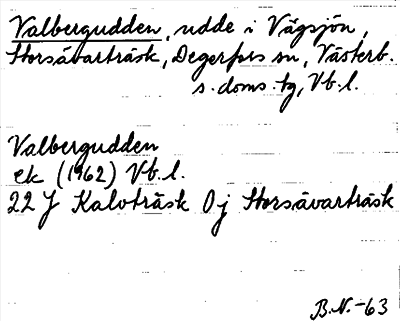 Valbergudden, udde i Vägsjön,
Storsävarträsk, Degerfors sn, Västerb.
s. doms. tg, Vb. l.
Valbergudden
ek (1962) Vb. l.
22 J Kalvträsk 0 j Storsävarträsk
B.N.-63